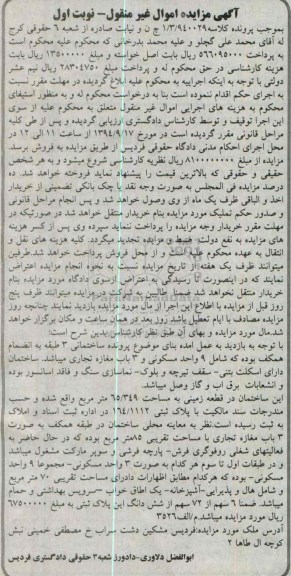 آگهی مزایده اموال غیر منقول- نوبت اول
بموجب پرونده کلاسه ۱/۳/۹۴۰۰۲۹ ج ن و نیابت صادره از شعبه ۶ حقوقی کرج
له آقای محمد علی گچلو و علیه محمد بدرخانی که محکوم علیه محکوم است
به پرداخت ۵۶۶۰۹۵۰۰۰ ریال بابت اصل خواسته و مبلغ ۱۳۵۰۰۰۰۰ ریال بابت
هزینه کارشناسی در حق محکوم له و پرداخت مبلغ ۲۸۳۰۴۷۵۰ ریال نیم عشر
دولتی با توجه به اینکه اجرائیه به محکوم علیه ابلاغ گردیده در مهلت مقرر نسبت
به اجرای حکم اقدام ننموده است بنا به درخواست محکوم له و به منظور استیفای
محکوم به هزینه های اجرایی اموال غیر منقول متعلق به محکوم علیه از سوی
این اجرا توقیف و توسط کارشناس دادگستری ارزیابی گردیده و پس از طی کلیه
مراحل قانونی مقرر گردیده است در مورخ ۱۳۹۴/۹/۱۷ از ساعت ۱۱ الی ۱۲ در
محل اجرای احکام مدنی دادگاه حقوقی فردیس از طریق مزایده به فروش برسد
مزایده از مبلغ ۸۱۰۰۰۰۰۰۰۰ ریال نظریه کارشناسی شروع میشود و به هر شخص
حقیقی و حقوقی که بالاترین قیمت را پیشنهاد نماید فروخته خواهد شد. ده
درصد مزایده فی المجلس به صورت وجه نقد یا چک بانکی تضمینی از خریدار
اخذ و الباقی ظرف یک ماه از وی وصول خواهد شد و پس انجام مراحل قانونی
و صدور حکم تملیک مورد مزایده بنام خریدار منتقل خواهد شد در صورتیکه در
مهلت مقرر خریدار وجه مزایده را پرداخت ننماید سپرده وی پس از کسر هزینه
های مزایده به نفع دولت ضبط و مزایده تجدید میگردد. کلیه هزینه های نقل و
انتقال به عهده محکوم علیه است و از محل فروش پرداخت خواهد شد.طرفین
میتوانند ظرف یک هفته از تاریخ مزایده نسبت به نحوه انجام مزایده اعتراض
نمایند که در اینصورت تا رسیدگی به اعتراض ازسوی دادگاه مورد مزایده بنام
خریدار منتقل نخواهد شد ضمنا طالبین به شرکت در مزایده میتوانند ظرف پنج
روز قبل از مزایده با اطلاع این اجرا از مال مورد مزایده بازدید نمایند چنانچه روز
مزایده مصادف با ایام تعطیل باشد روز بعد در همان ساعت و مکان برگزار خواهد
شد.مال مورد مزایده و بهای آن طبق نظر کارشناس بدین شرح است:
با توجه به بازدید به عمل امده بنای موضوع پرونده ساختمانی ۳ طبقه به انضمام
همکف بوده که شامل ۹ واحد مسکونی و ۳ باب مغازه تجاری میباشد. ساختمان
دارای اسکلت بتنی- سقف تیرچه و بلوک- نماسازی سنگ و فاقد اسانسور بوده
و انشعابات برق اب و گاز وصل میباشد.
این ساختمان در قطعه زمینی به مساحت ۶۵/۳۴۹ متر مربع واقع شده و حسب
مندرجات سند مالکیت با پلاک ثبتی ۱۶۴/۱۱۱۲ در اداره ثبت اسناد و املاک
به ثبت رسیده است.نظر به معاینه محلی ساختمان در طبقه همکف به صورت
۳ باب مغازه تجاری با مساحت تقریبی ۸۵متر مربع بوده که در حال حاضر به
فعالیتهای شغلی روفوگری فرش- پارچه فرشی و سوپر مارکت مشغول میباشد
و در طبقات اول تا سوم هر کدام به صورت ۳ واحد مسکونی- مجموعا ۹ واحد
مسکونی- بوده که هرکدام مطابق اظهارات دادرای مساحت تقریبی ۷۰ متر مربع
و شامل هال و پذیرایی-آشپزخانه- یک اطاق خواب -سرویس بهداشتی و حمام
میباشد. ضمنا ۶ سهم از ۷۲ سهم از شش دانگ این پلاک ثبتی به مبلغ ۶۷۵۰۰۰۰۰۰
ریال مورد مزایده میباشد.م/الف۳۵۲۶
آدرس ملک مورد مزایده:فردیس مشکین دشت سراب خ مصطفی خمینی نبش
کوچه ال طاها ۲
ابوالفضل دلاوری-دادورز شعبه۳ حقوقی دادگستری فردیس